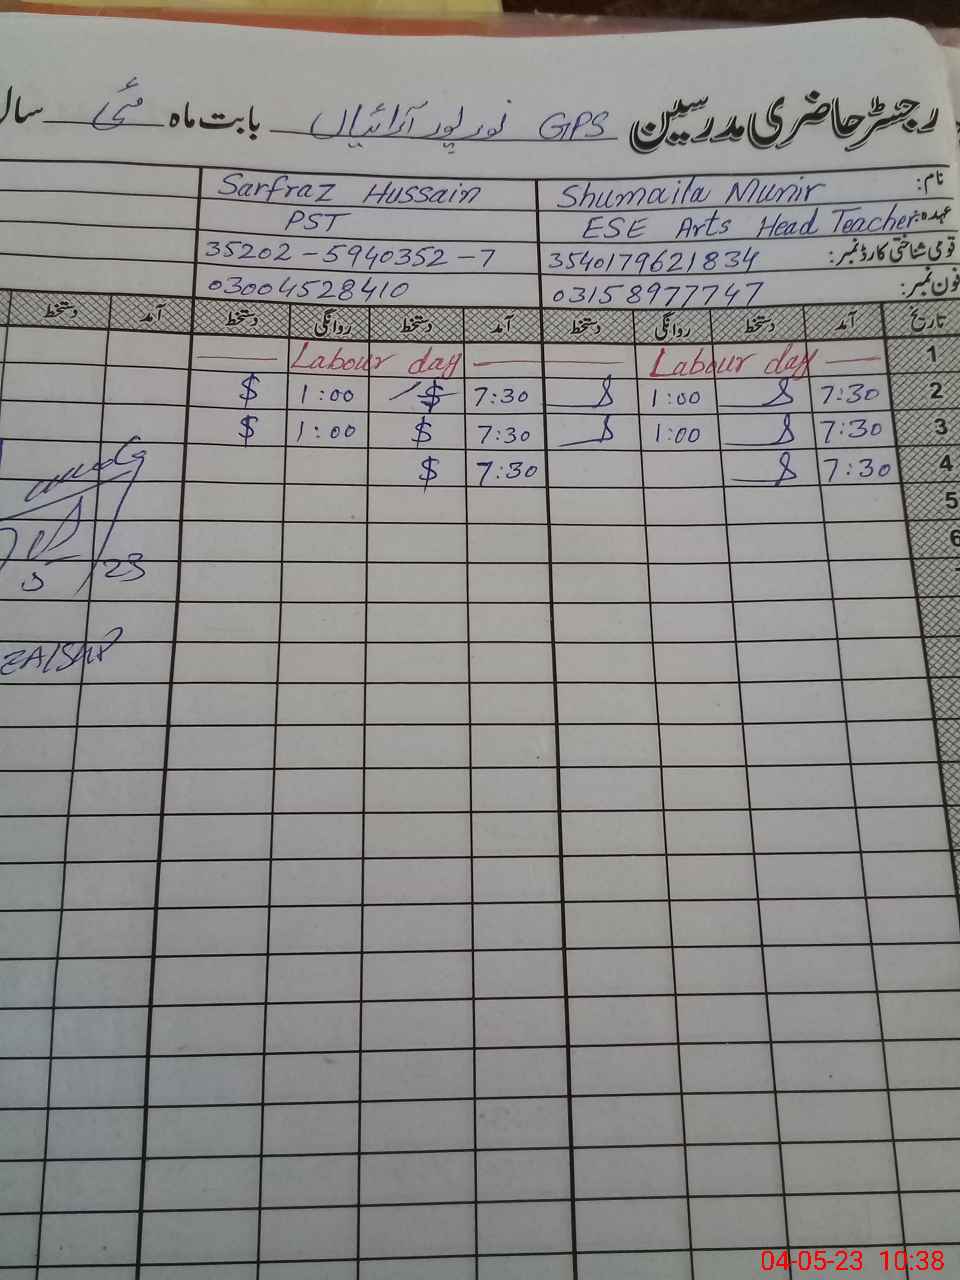 رجسٹر حاضری مدرسین GPS نور پور آرائیاں بابت ماہ مئی سال
نام: Shumaila Munir Sarfraz Hussain
عہدہ: ESE Arts Head Teacher PST
قومی شناختی کارڈ نمبر: 3540179621834 35202-5940352-7
فون نمبر: 03158977747 03004528410
تاریخ آمد دستخط روانگی دستخط آمد دستخط روانگی دستخط آمد دستخط
1 Labour day Labour day
2 7:30 1:00 7:30 1:00
3 7:30 1:00 7:30 1:00
4 7:30 7:30
5
6
5/23
04-05-23 10:38